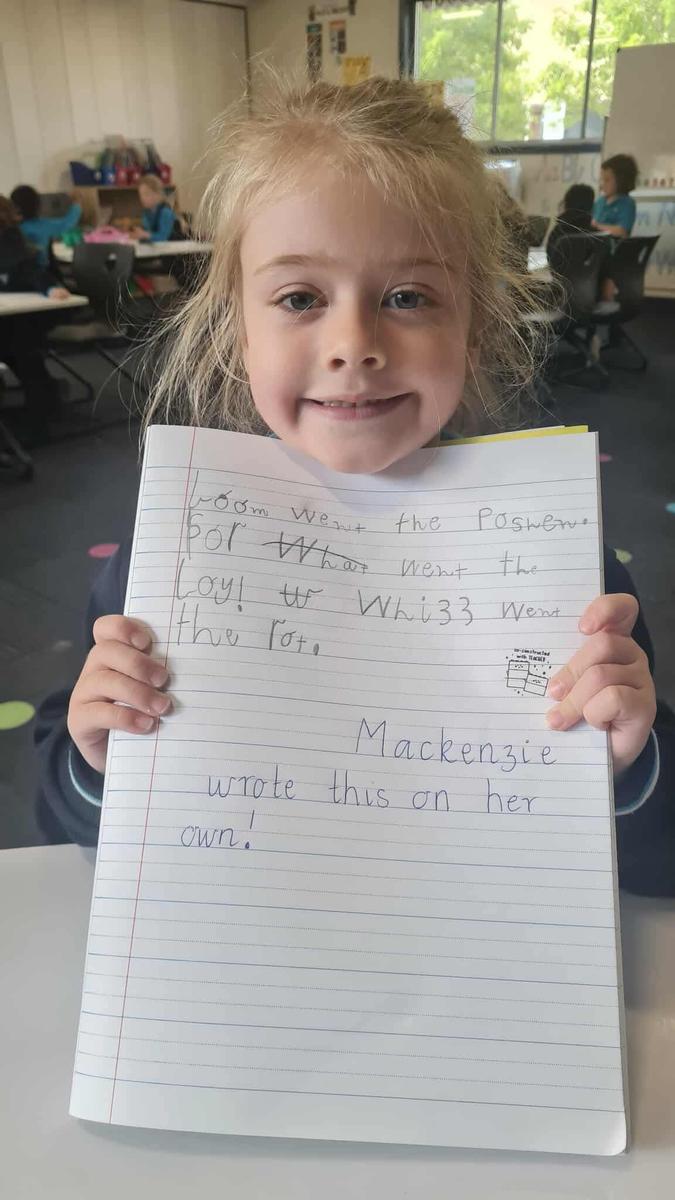 Loom went the Poshen.
For What went the
Loy! w Whizz went
the rot.
co-constructed
with TEACHER
Mackenzie
wrote this on her
own!